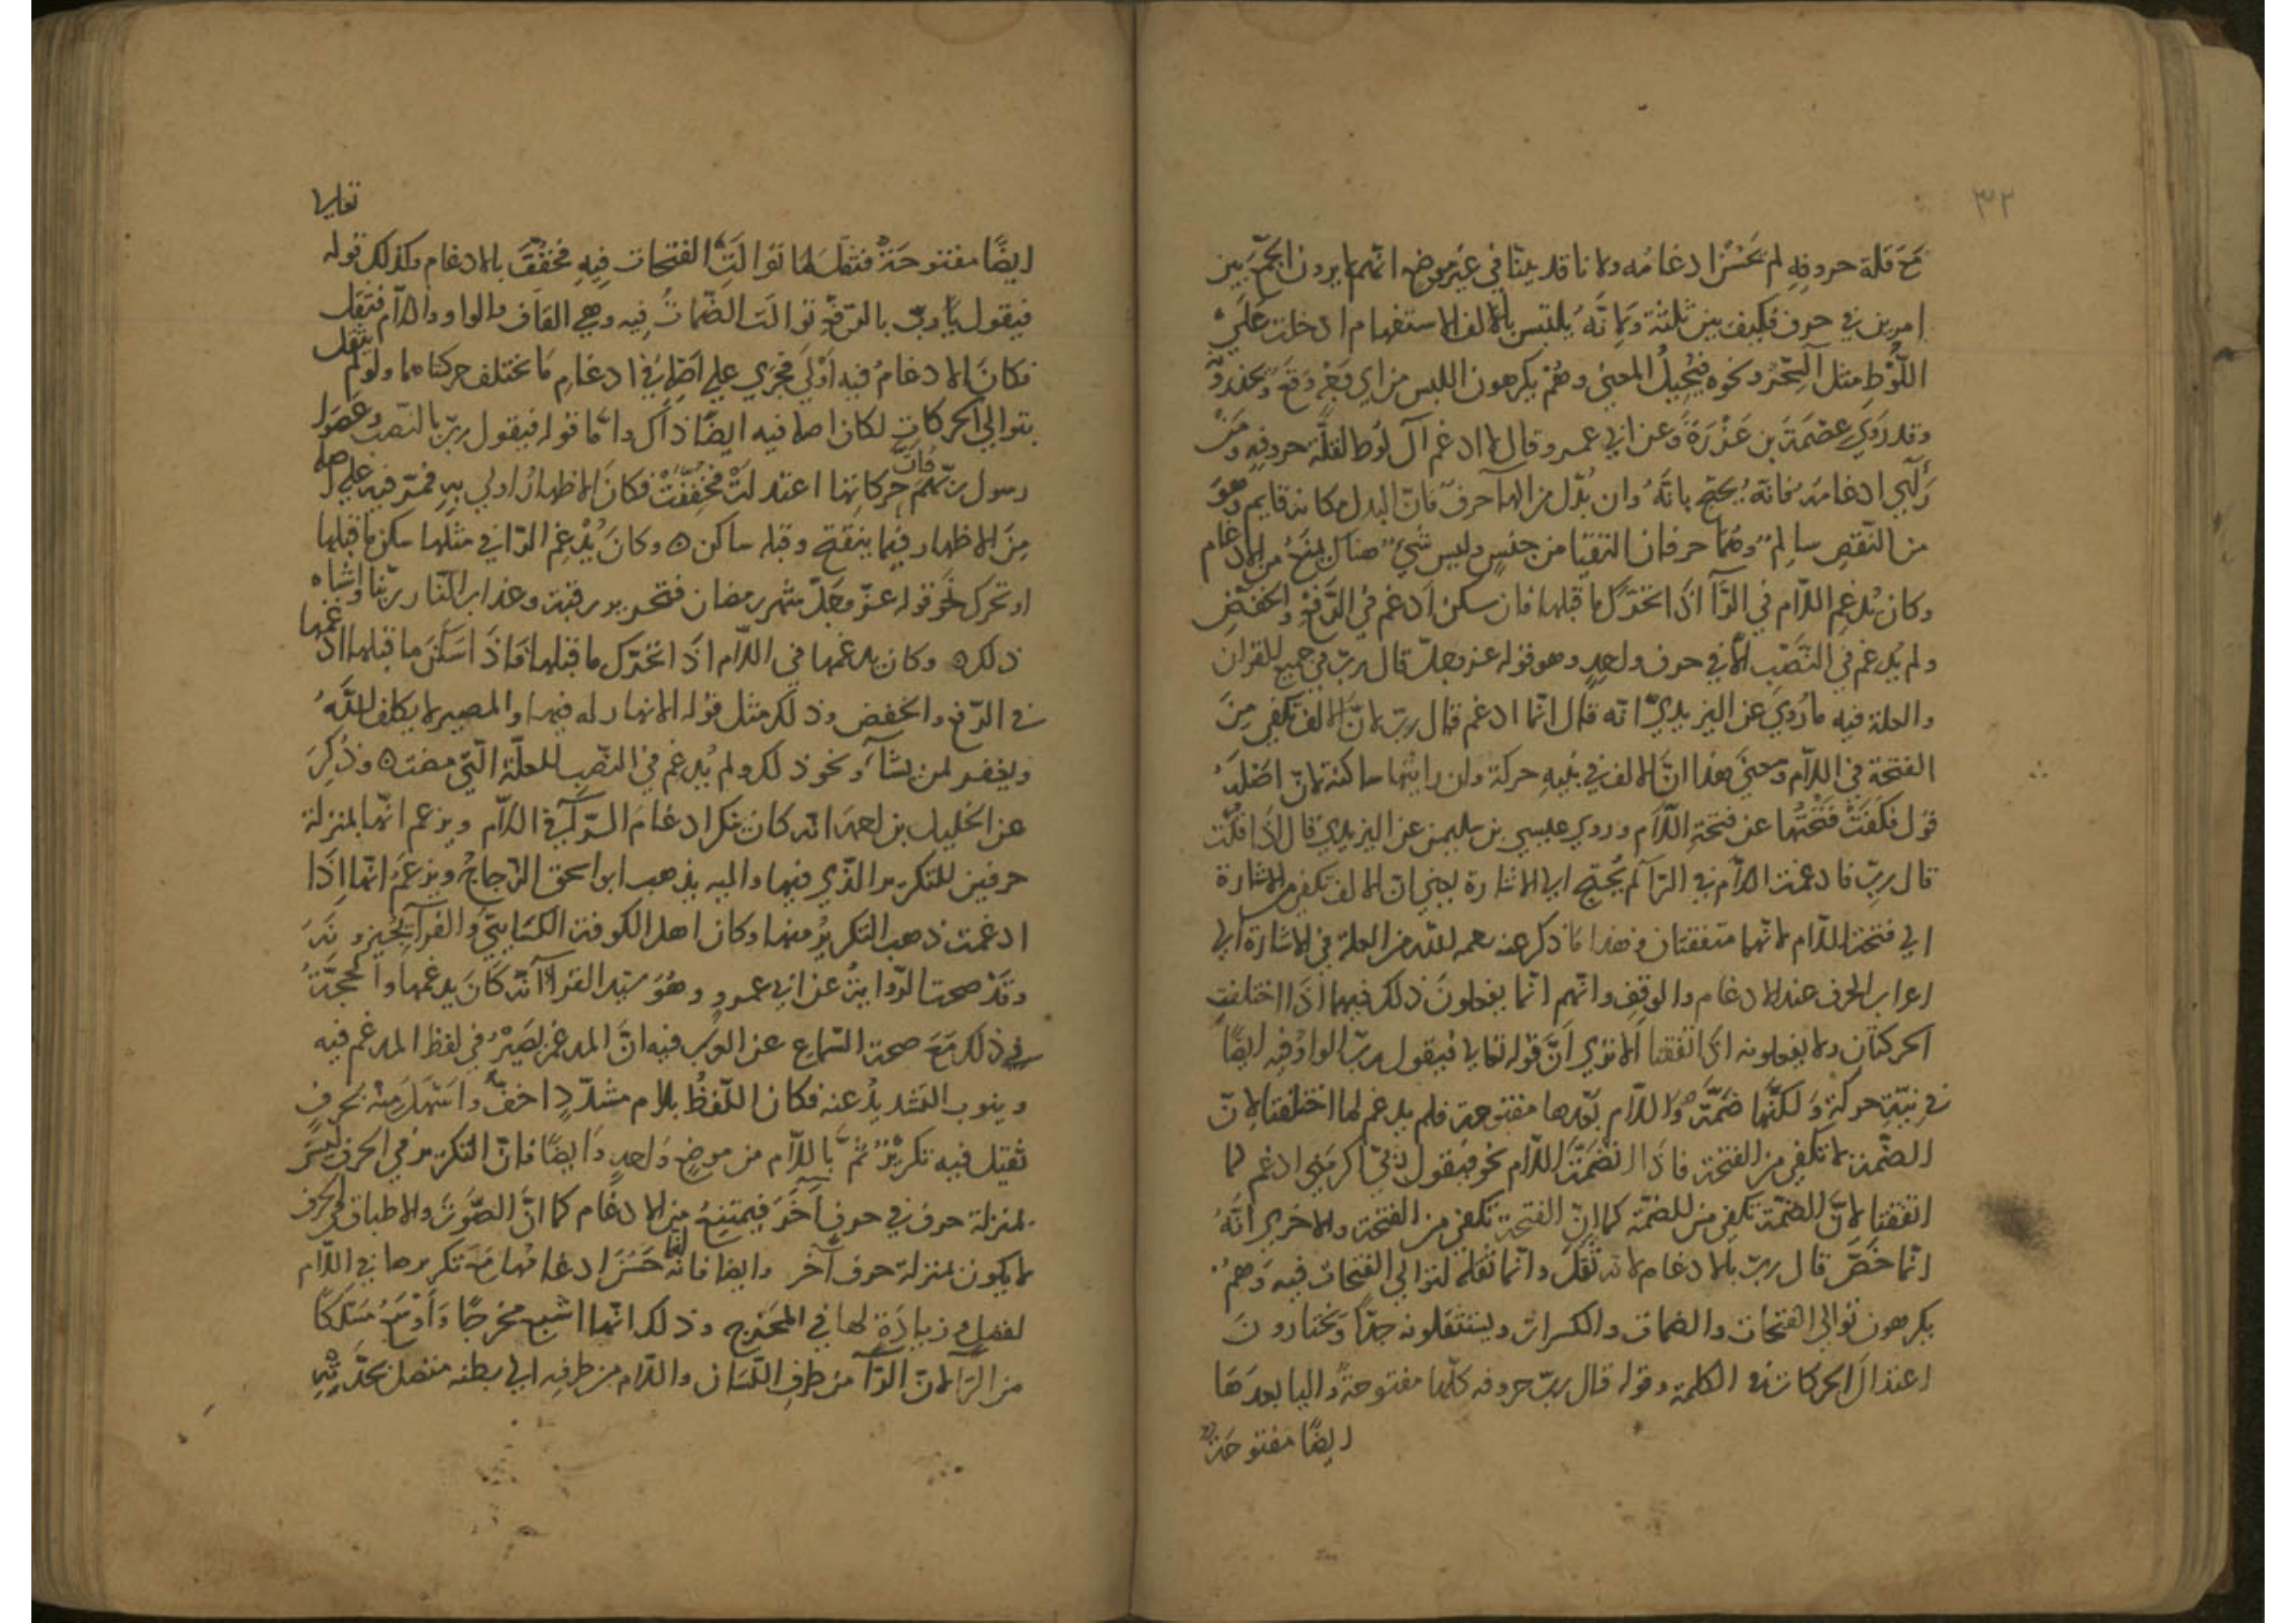 ٣٢
مَعَ قلة حروفِهِ لم يَحْسُنْ ادغامُه ولانا قد بينّا في غيَر موضع انّهم لا يرون الجمْع بين
امرين في حرف فكيف بين ثلثة ولانَّهُ يلتبس بالالف الاستفهام اذ دخلت عَلَي
اللُّوْطِ مثل آلسّحْر ونحوه فيُحِيلُ المعني وهُمْ يكرهون اللبس من اي وَجْهٍ وَقَعَ ويحذرونه
وقد رَوَي عِصْمَةُ بن عَزْرَةَ وعن ابي عمرو قال لا ادغم آل لُوط لقلّة حروفِهِ ومَنْ
رَأَي ادغامَهُ فانّه يُحتج بانَّهُ وان بُدّل من الها حرفٌ فانّ البدل مكانه قايم وهو
من النّقصِ سالِمٌ وهُمَا حرفان التقيَا من جنسٍ وليس شيٌ هناك يمنعُ من الادغام
وكان يُدغم اللّام في الرّآ اذَا تحَرّكَ ما قبلها فان سكن ادغم في الرّفع والخفضِ
ولم يُدغم في النّصْبِ الّا في حرف واحدٍ وهو قوله عز وجلّ قال ربّ في جميع القران
والعلة فيه ما رُويَ عن اليزيديّ انّه قال انّما ادغم قال ربّ لانّ الالف تكفي مِنَ
الفتحة في اللّام ومعنَي هذا انّ الالف في نيّةِ حركة وان رايتَها ساكنة لانّ اصْلَهُ
قَوَل فكَفَتْ فَتْحَتُها عن فتحة اللّام وروي عيسي بن سليمن عن اليزيدي قال اذا قلت
قال ربّ فادغمت اللّام في الرّا لم يُحتج الي الاشارة يعني ان الالف تكفي من الاشارة
الي فتحة اللّام لانّهما متفقتان وهذا ما ذكر عنه رحمه اللّه من العلة في الاشارة الي
اعراب الحرف عند الادغام والوقف وانّهم انّما يفعلونَ ذلك فيهما اذَا اختلفتِ
الحركتان ولا يفعلونه اذا اتفقتا الا تري أنَّ قوله تعالي فيقول ربّ الواوُ فيه ايضًا
في نيّةِ حركةٍ ولكنَّها ضَمَّةٌ واللّام بَعْدها مفتوحة فلم يدغم لما اختلفتا لانّ
الضّمة لا تكفي من الفتحة فاذَا انضَمَّتِ اللّام نحو فيقول ربّي اكرمَنِي ادغم لما
اتفقتا لانّ الضمّة تكفي من الضمّة كما انّ الفتحة تكفي من الفتحة والاخري انَّهُ
انّما خَصَّ قال ربّ بالادغام لانّه ثَقُلَ وانّما ثقله لتوالي الفتحات فيه وهم
يكرهون توالي الفتحات والضمات والكسرات ويستثقلونه جدًّا ويختارون
اعتدالَ الحركات في الكلمة وقوله قال ربّ حروفه كلّها مفتوحةٌ والبا بعدَهَا
ايضًا مفتوحة
ايضًا مفتوحَةٌ فثقلَ لما توَالَتِ الفتحات فِيهِ فخُفّفَ بالادغام وكذلك قوله تعالي
فيقول يا ربّ بالرّفعِ توالَت الضّماتُ فِيه وهي القاف والواو واللّام فثقل
فكانَ الادغامُ فيه أَوْلَي فجَرَي علي اصْلِهِ في ادغامِ مَا يختلف حركتاهما ولو لم يثقل
بتوالي الحركاتِ لكان اصله فيه ايضًا ذاك وامّا قوله فيقول ربّ بالنّصبِ وعَصَوا
رسول ربّهم فانّ حركاتها اعتدلتْ فخُفّفَتْ فكانَ الاظهارُ اولي بِهِ فمَرّ فيه علي اصله
مِنَ الاظهار فيما ينفتح وقبله ساكن ه وكانَ يُدْغِم الرّا في مثلها سكن ما قبلها
او تحرك نحو قوله عزّ وجَلّ شهر رمضان فتحرير رقبة وعذاب النّار ربّنا واشباه
ذلك ه وكان يدغمها في اللّام اذَا تحرّك ما قبلها فاذَا سَكَنَ ما قبلها ادغمها
في الرّفع والخفض وذلك مثل قوله الانهار له فيها والمصير لا يكلف اللّهُ
ويغفر لمن يشآ ونحو ذلك ولم يُدغم في النّصبِ للعلّة الّتي مضت ه وذُكِرَ
عن الخليل بن احمد انّه كان ينكر ادغامَ الرّآ في اللّام ويزعم انّها بمنزلة
حرفين للتكرير الّذي فيها واليه يذهب ابو اسحق الزّجاجُ ويزعمُ انّها اذَا
ادغمت ذهب التكريرُ منها وكان اهل الكوفة الكسَايّ والفرآ يُجيزونَهُ
وقدْ صحت الرّوايةُ عن ابي عمرو وهُوَ سيّد القرّا انّه كَانَ يدغمها والحجّةُ
في ذلك مَعَ صحة السّماع عن العرب فيه انّ المدغم يَصِيْرُ في لفظ المدغم فيه
وينوب التشديدُ عنه فكان اللّفظُ بلام مشدّدٍ اخفَّ واسْهَلَ منْهُ بحرفٍ
ثقيل فيه تكريْرٌ ثمَّ باللّام من موضعٍ واحدٍ وايضًا فانّ التكرير في الحرف ليسَ
بمنزلة حرف في حرفٍ آخَرَ فيمتنع من الادغام كما انّ الصّوْتَ والاطباق في الحرف
لا يكون بمنزلة حرف آخر وايضا فانّه انّما حَسُنَ ادغامُها مَعَ تكريرها في اللّام
لفضل زيادَةٍ لها في المخرج وذلك انّها اشبع مخرجًا وأوْسَعُ مَسْلكًا
من الرّا لانّ الرّآ من طرفِ اللّسَان واللّام من طرفِه الي بطنه متصل